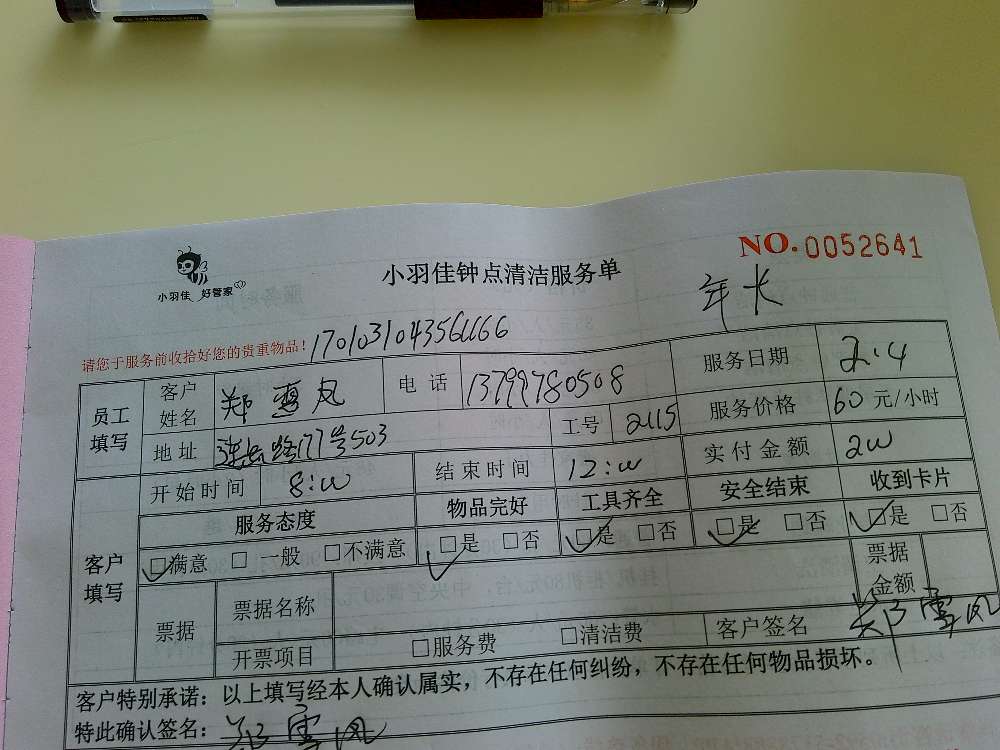 小羽佳 好管家
小羽佳钟点清洁服务单
NO.0052641
年长
请您于服务前收拾好您的贵重物品!
员工填写
客户姓名
电话 13799780508
服务日期 2.4
地址 177号503
工号 2115
服务价格 60 元/小时
开始时间 8:00
结束时间 12:00
实付金额 200
客户填写
服务态度 物品完好 工具齐全 安全结束 收到卡片
☑满意 □一般 □不满意 ☑是 □否 ☑是 □否 ☑是 □否 ☑是 □否
票据
票据名称
票据金额
开票项目 □服务费 □清洁费
客户签名 郑雪凤
客户特别承诺:以上填写经本人确认属实,不存在任何纠纷,不存在任何物品损坏。
特此确认签名:郑雪凤